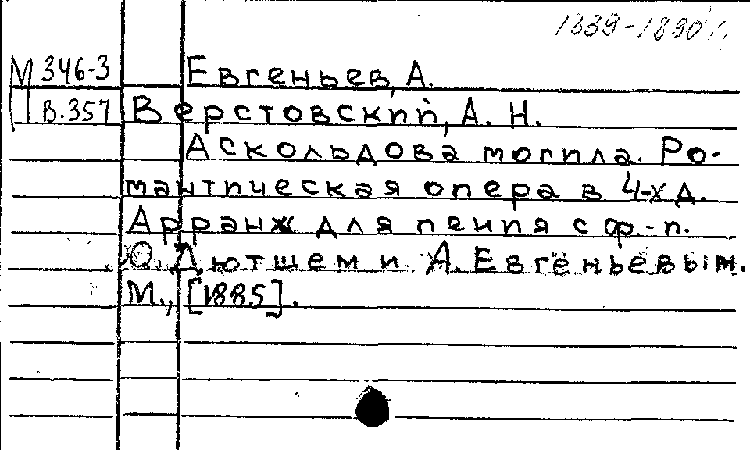 1839-1890 г.
М 346-3 Евгеньев, А.
В.357 Верстовский, А. Н.
Аскольдова могила. Ро-
мантическая опера в 4-х д.
Арранж для пения с ф.-п.
О. Дютшем и А. Евгеньевым.
М., [1885].